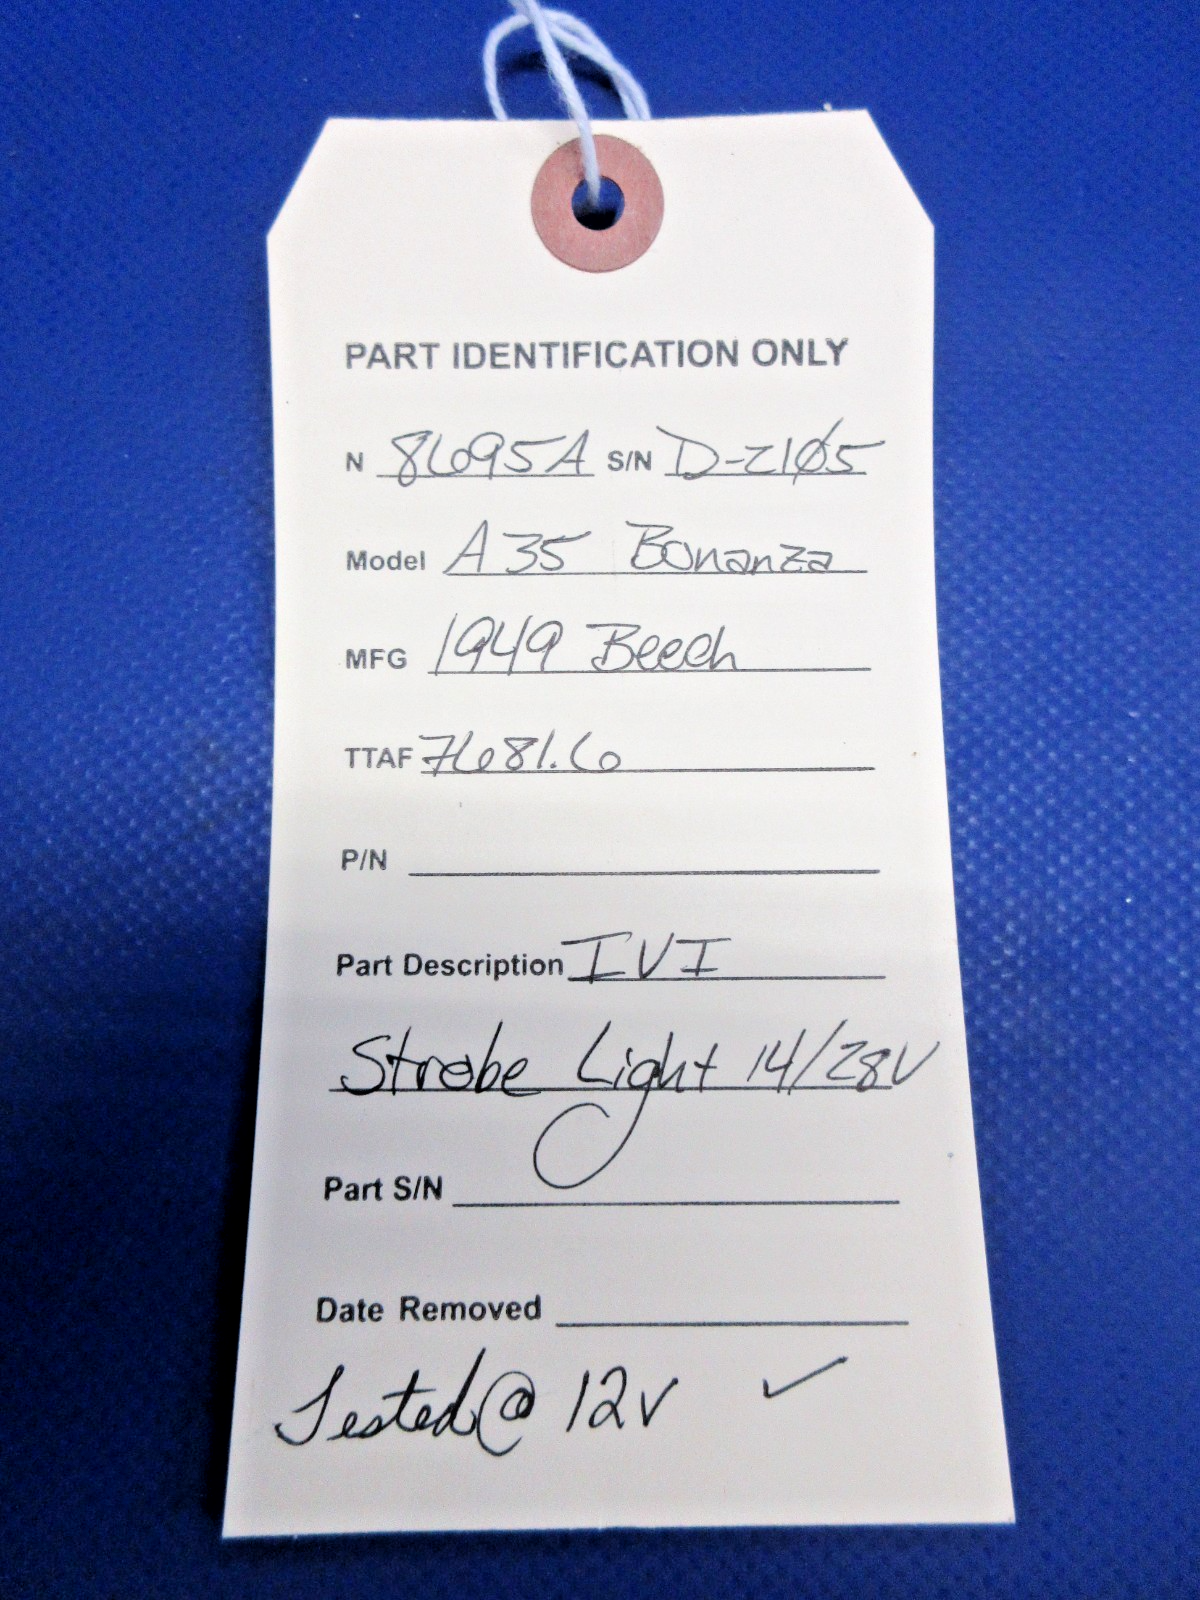 PART IDENTIFICATION ONLY
N 8695A S/N D-2105
Model A35 Bonanza
MFG 1949 Beech
TTAF 7681.6
P/N
Part Description IVI
Strobe Light 14/28V
Part S/N
Date Removed
Tested @ 12V ✓